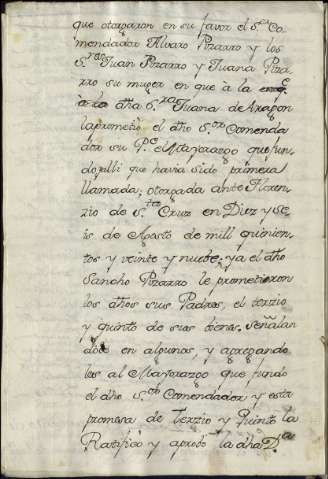 que otorgaron en su favor el S.or Co-
mendador Alvaro Pizarro y los
S.res Juan Pizarro y Juana Piza-
rro su muger en que à la
dha S.ra Juana de Aragon
la prometio el dho S.or Comenda
dor su P.e el Mayorazgo que fun-
do, y alli que havia sido primera
llamada; otorgada ante Floren-
zio de S.ta Cruz en Diez y se-
is de Agosto de mill quinien-
tos y veinte y nuebe; ya el dho
Sancho Pizarro le prometieron
los dhos sus Padres, el terzio
y quinto de sus bienes, señalan
dole en algunos, y agregando
los al Mayorazgo que fundo
el dho S.or Comendador y esta
promesa de Terzio y Quinto la
Ratificó y aprobó la dha D.a